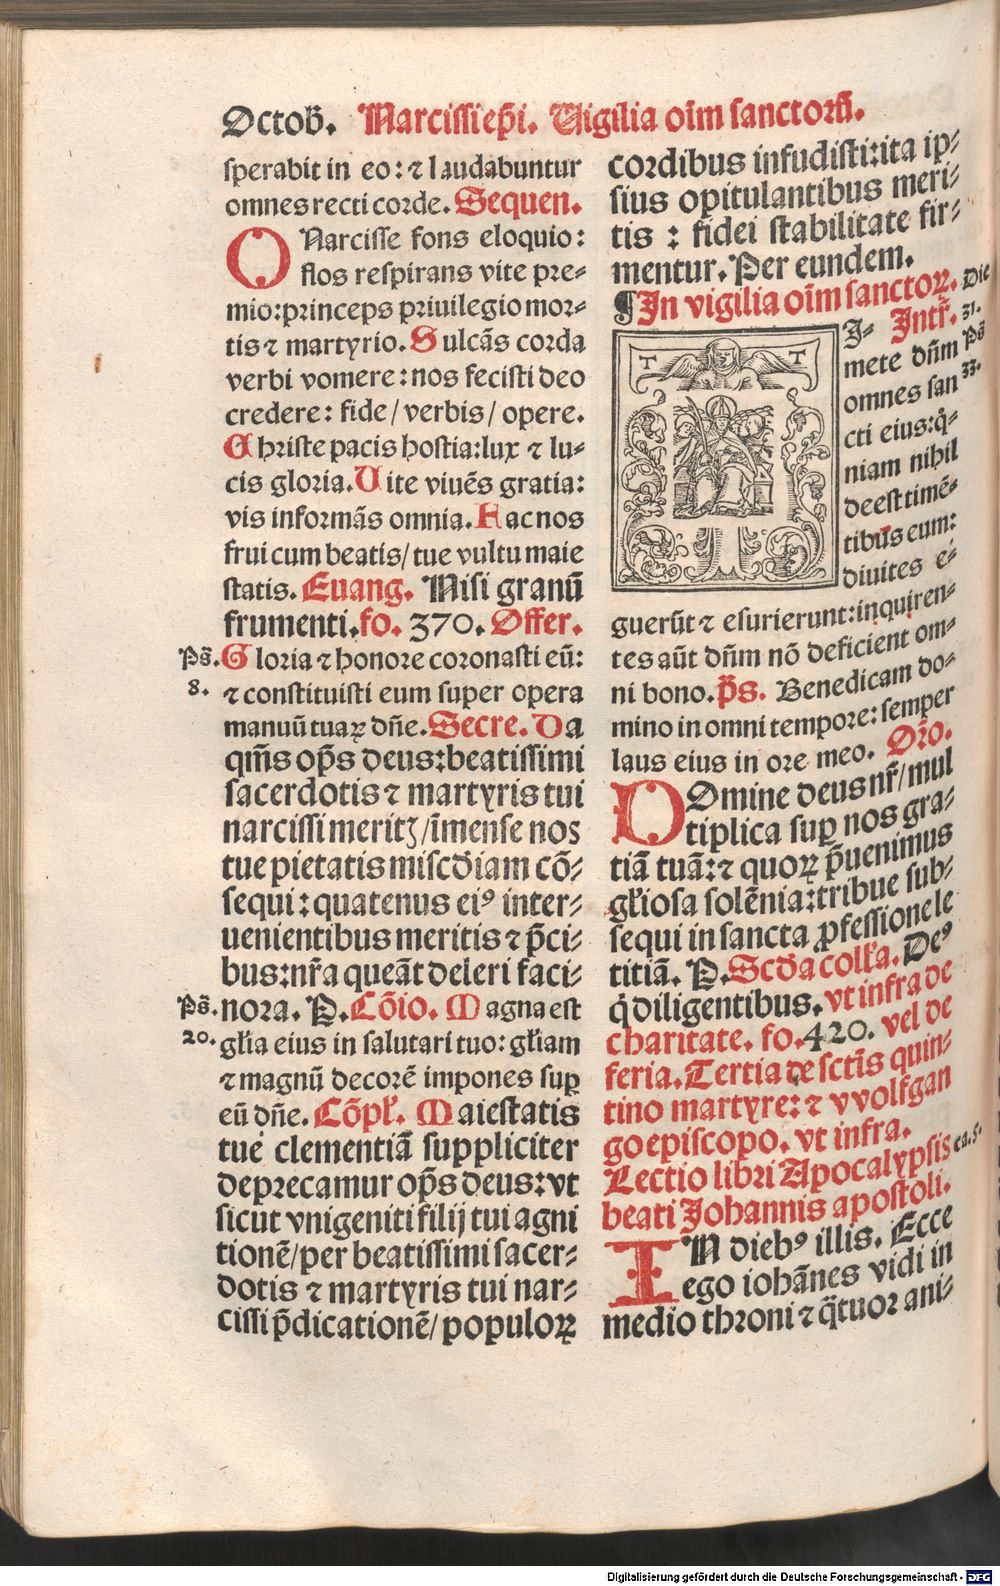 Octob̄. Narcissi ep̄i. Uigilia oīm sanctorū.
sperabit in eo: ⁊ laudabuntur
omnes recti corde. Sequen.
O Narcisse fons eloquio:
flos respirans vite pre⸗
mio: princeps priuilegio mor⸗
tis ⁊ martyrio. Sulcās corda
verbi vomere: nos fecisti deo
credere: fide/ verbis/ opere.
Christe pacis hostia: lux ⁊ lu⸗
cis gloria. Uite viuēs gratia:
vis informās omnia. Hac nos
frui cum beatis/ tue vultu maie
statis. Euang. Nisi granū
frumenti. fo. 370. Offer.
Ps̄. Gloria ⁊ honore coronasti eū:
8. ⁊ constituisti eum super opera
manuū tuaꝝ dn̄e. Secre. Da
qm̄s op̄s deus: beatissimi
sacerdotis ⁊ martyris tui
narcissi meritꝫ/ īmense nos
tue pietatis miscd̄iam cō⸗
sequi: quatenus eiꝰ inter⸗
uenientibus meritis ⁊ p̄ci⸗
bus: nr̄a queāt deleri faci⸗
Ps̄. nora. P. Cōio. Magna est
20. gl̄ia eius in salutari tuo: gl̄iam
⁊ magnū decorē impones suꝑ
eū dn̄e. Cōpl̄. Maiestatis
tue clementiā suppliciter
deprecamur op̄s deus: vt
sicut vnigeniti filij tui agni
tionē/ per beatissimi sacer⸗
dotis ⁊ martyris tui nar⸗
cissi p̄dicationē/ populoꝝ
cordibus infudisti: ita ip⸗
sius opitulantibus meri⸗
tis : fidei stabilitate fir⸗
mentur. Per eundem.
¶ In vigilia oīm sanctoꝝ. Die
Intr̄. 31.
T T
I⸗
mete dn̄m Ps̄
omnes san 33.
cti eius: q̄⸗
niam nihil
deest timē⸗
tibus eum:
diuites e⸗
guerūt ⁊ esurierunt: inquiren⸗
tes aūt dn̄m nō deficient om⸗
ni bono. p̄s. Benedicam do⸗
mino in omni tempore: semper
laus eius in ore meo. Orō.
DOmine deus nr̄/ mul
tiplica suꝑ nos gra⸗
tiā tuā: ⁊ quoꝝ p̄uenimus
gl̄iosa solēnia: tribue sub⸗
sequi in sancta ꝓfessione le
titiā. P. Scd̄a coll̄a. Deꝰ
q̄ diligentibus. vt infra de
charitate. fo. 420. vel de
feria. Tertia de sctīs quin⸗
tino martyre: ⁊ vvolfgan
go episcopo. vt infra.
Lectio libri Apocalypsis ca. 5.
beati Johannis apostoli.
IN diebꝰ illis. Ecce
ego iohānes vidi in
medio throni ⁊ q̄tuor ani⸗
Digitalisierung gefördert durch die Deutsche Forschungsgemeinschaft - DFG